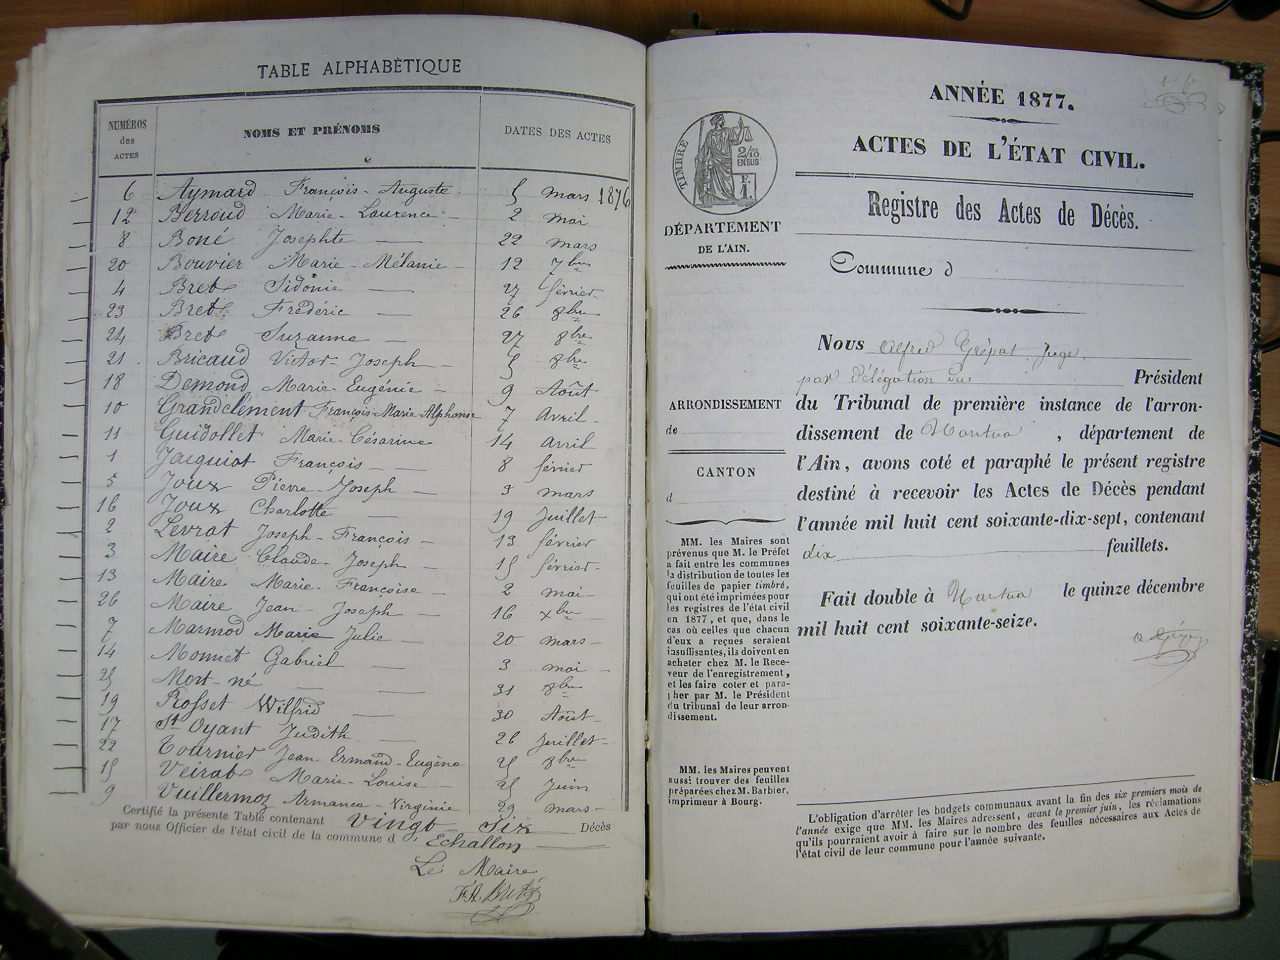 TABLE ALPHABÈTIQUE
NUMÉROS des ACTES NOMS ET PRÉNOMS DATES DES ACTES
6 Aymard François-Auguste 5 mars 1876
12 Berroud Marie-Laurence 2 mai
8 Boné Josephte 22 mars
20 Bouvier Marie-Mélanie 12 7bre
4 Bret Sidonie 27 février
23 Bret Frédéric 26 8bre
24 Bret Suzanne 27 8bre
21 Bricaud Victor Joseph 5 8bre
18 Demond Marie-Eugénie 9 Août
10 Grandclément François-Marie Alphonse 7 Avril
11 Guidollet Marie-Césarine 14 avril
1 Jacquiot François 8 février
5 Joux Pierre-Joseph 3 mars
16 Joux Charlotte 19 Juillet
2 Levrat Joseph-François 13 février
3 Maire Claude-Joseph 15 février
13 Maire Marie-Françoise 2 mai
26 Maire Jean-Joseph 16 xbre
7 Marmod Marie Julie 20 mars
14 Monnet Gabriel 3 mai
25 Mort-né 31 8bre
19 Rosset Wilfrid 30 Août
17 St Oyant Judith 26 Juillet
22 Tournier Jean Ermand-Eugène 25 8bre
15 Veirat Marie-Louise 25 Juin
9 Vuillermoz Armance-Virginie 29 mars
Certifié la présente Table contenant Vingt Six Décès
par nous Officier de l'état civil de la commune d'Echallon
Le Maire
ANNÉE 1877.
ACTES DE L'ÉTAT CIVIL.
Registre des Actes de Décès.
TIMBRE
2/10 EN SUS
F. 1.
DÉPARTEMENT
DE L'AIN.
Commune d
Nous Alfred Juge
par délégation du Président
du Tribunal de première instance de l'arron-
dissement de Nantua , département de
l'Ain, avons coté et paraphé le présent registre
destiné à recevoir les Actes de Décès pendant
l'année mil huit cent soixante-dix-sept, contenant
dix feuillets.
Fait double à Nantua le quinze décembre
mil huit cent soixante-seize.
ARRONDISSEMENT
de
CANTON
d
MM. les Maires sont
prévenus que M. le Préfet
a fait entre les communes
la distribution de toutes les
feuilles de papier timbré,
qui ont été imprimées pour
les registres de l'état civil
en 1877, et que, dans le
cas où celles que chacun
d'eux a reçues seraient
insuffisantes, ils doivent en
acheter chez M. le Rece-
veur de l'enregistrement,
et les faire coter et para-
pher par M. le Président
du tribunal de leur arron-
dissement.
MM. les Maires peuvent
aussi trouver des feuilles
préparées chez M. Barbier,
imprimeur à Bourg.
L'obligation d'arrêter les budgets communaux avant la fin des six premiers mois de
l'année exige que MM. les Maires adressent, avant le premier juin, les réclamations
qu'ils pourraient avoir à faire sur le nombre des feuilles nécessaires aux Actes de
l'état civil de leur commune pour l'année suivante.